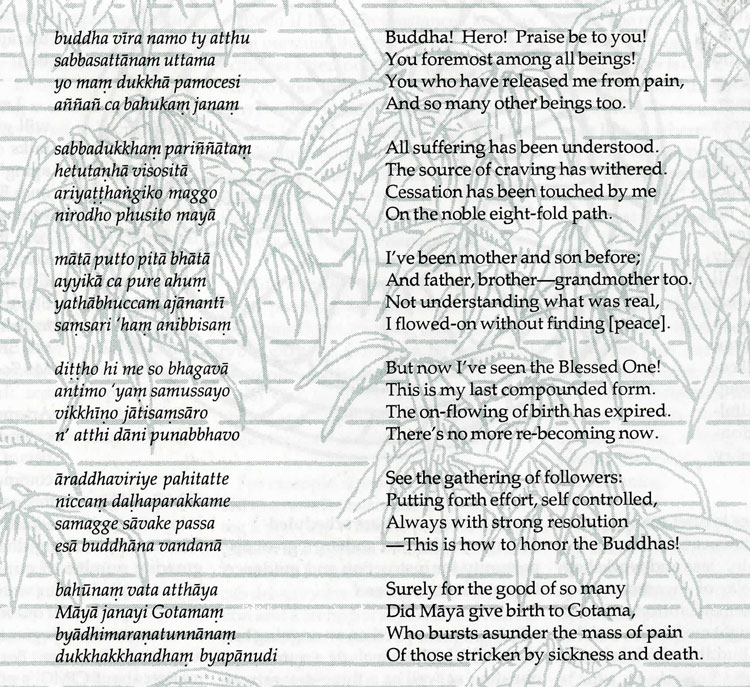 buddha vīra namo ty atthu
sabbasattānaṃ uttama
yo maṃ dukkhā pamocesi
aññañ ca bahukaṃ janaṃ

sabbadukkhaṃ pariññātaṃ
hetutaṇhā visositā
ariyaṭṭhaṅgiko maggo
nirodho phusito mayā

mātā putto pitā bhātā
ayyikā ca pure ahuṃ
yathābhuccam ajānantī
saṃsari ’haṃ anibbisaṃ

diṭṭho hi me so bhagavā
antimo ‘yaṃ samussayo
vikkhīṇo jātisaṃsāro
n’ atthi dāni punabbhavo

āraddhaviriye pahitatte
niccaṃ daḷhaparakkame
samagge sāvake passa
esā buddhāna vandanā

bahūnaṃ vata atthāya
Māyā janayi Gotamaṃ
byādhimaraṇatunnānaṃ
dukkhakkhandhaṃ byapānudi

Buddha! Hero! Praise be to you!
You foremost among all beings!
You who have released me from pain,
And so many other beings too.

All suffering has been understood.
The source of craving has withered.
Cessation has been touched by me
On the noble eight-fold path.

I’ve been mother and son before;
And father, brother—grandmother too.
Not understanding what was real,
I flowed-on without finding [peace].

But now I’ve seen the Blessed One!
This is my last compounded form.
The on-flowing of birth has expired.
There’s no more re-becoming now.

See the gathering of followers:
Putting forth effort, self controlled,
Always with strong resolution
—This is how to honor the Buddhas!

Surely for the good of so many
Did Māyā give birth to Gotama,
Who bursts asunder the mass of pain
Of those stricken by sickness and death.